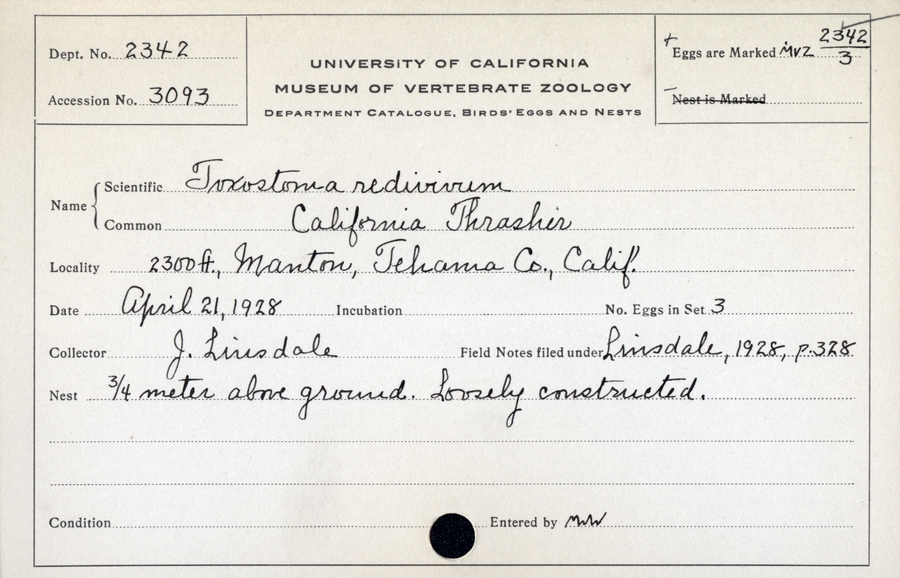 Dept. No. 2342
Accession No. 3093
UNIVERSITY OF CALIFORNIA
MUSEUM OF VERTEBRATE ZOOLOGY
DEPARTMENT CATALOGUE, BIRDS' EGGS AND NESTS
+ Eggs are Marked MVZ 2342/3
- Nest is Marked
Name { Scientific Toxostoma redivivum
Common California Thrasher
Locality 2300 ft., Manton, Tehama Co., Calif.
Date April 21, 1928 Incubation No. Eggs in Set 3
Collector J. Linsdale Field Notes filed under Linsdale, 1928, p.328
Nest 3/4 meter above ground. Loosely constructed.
Condition Entered by